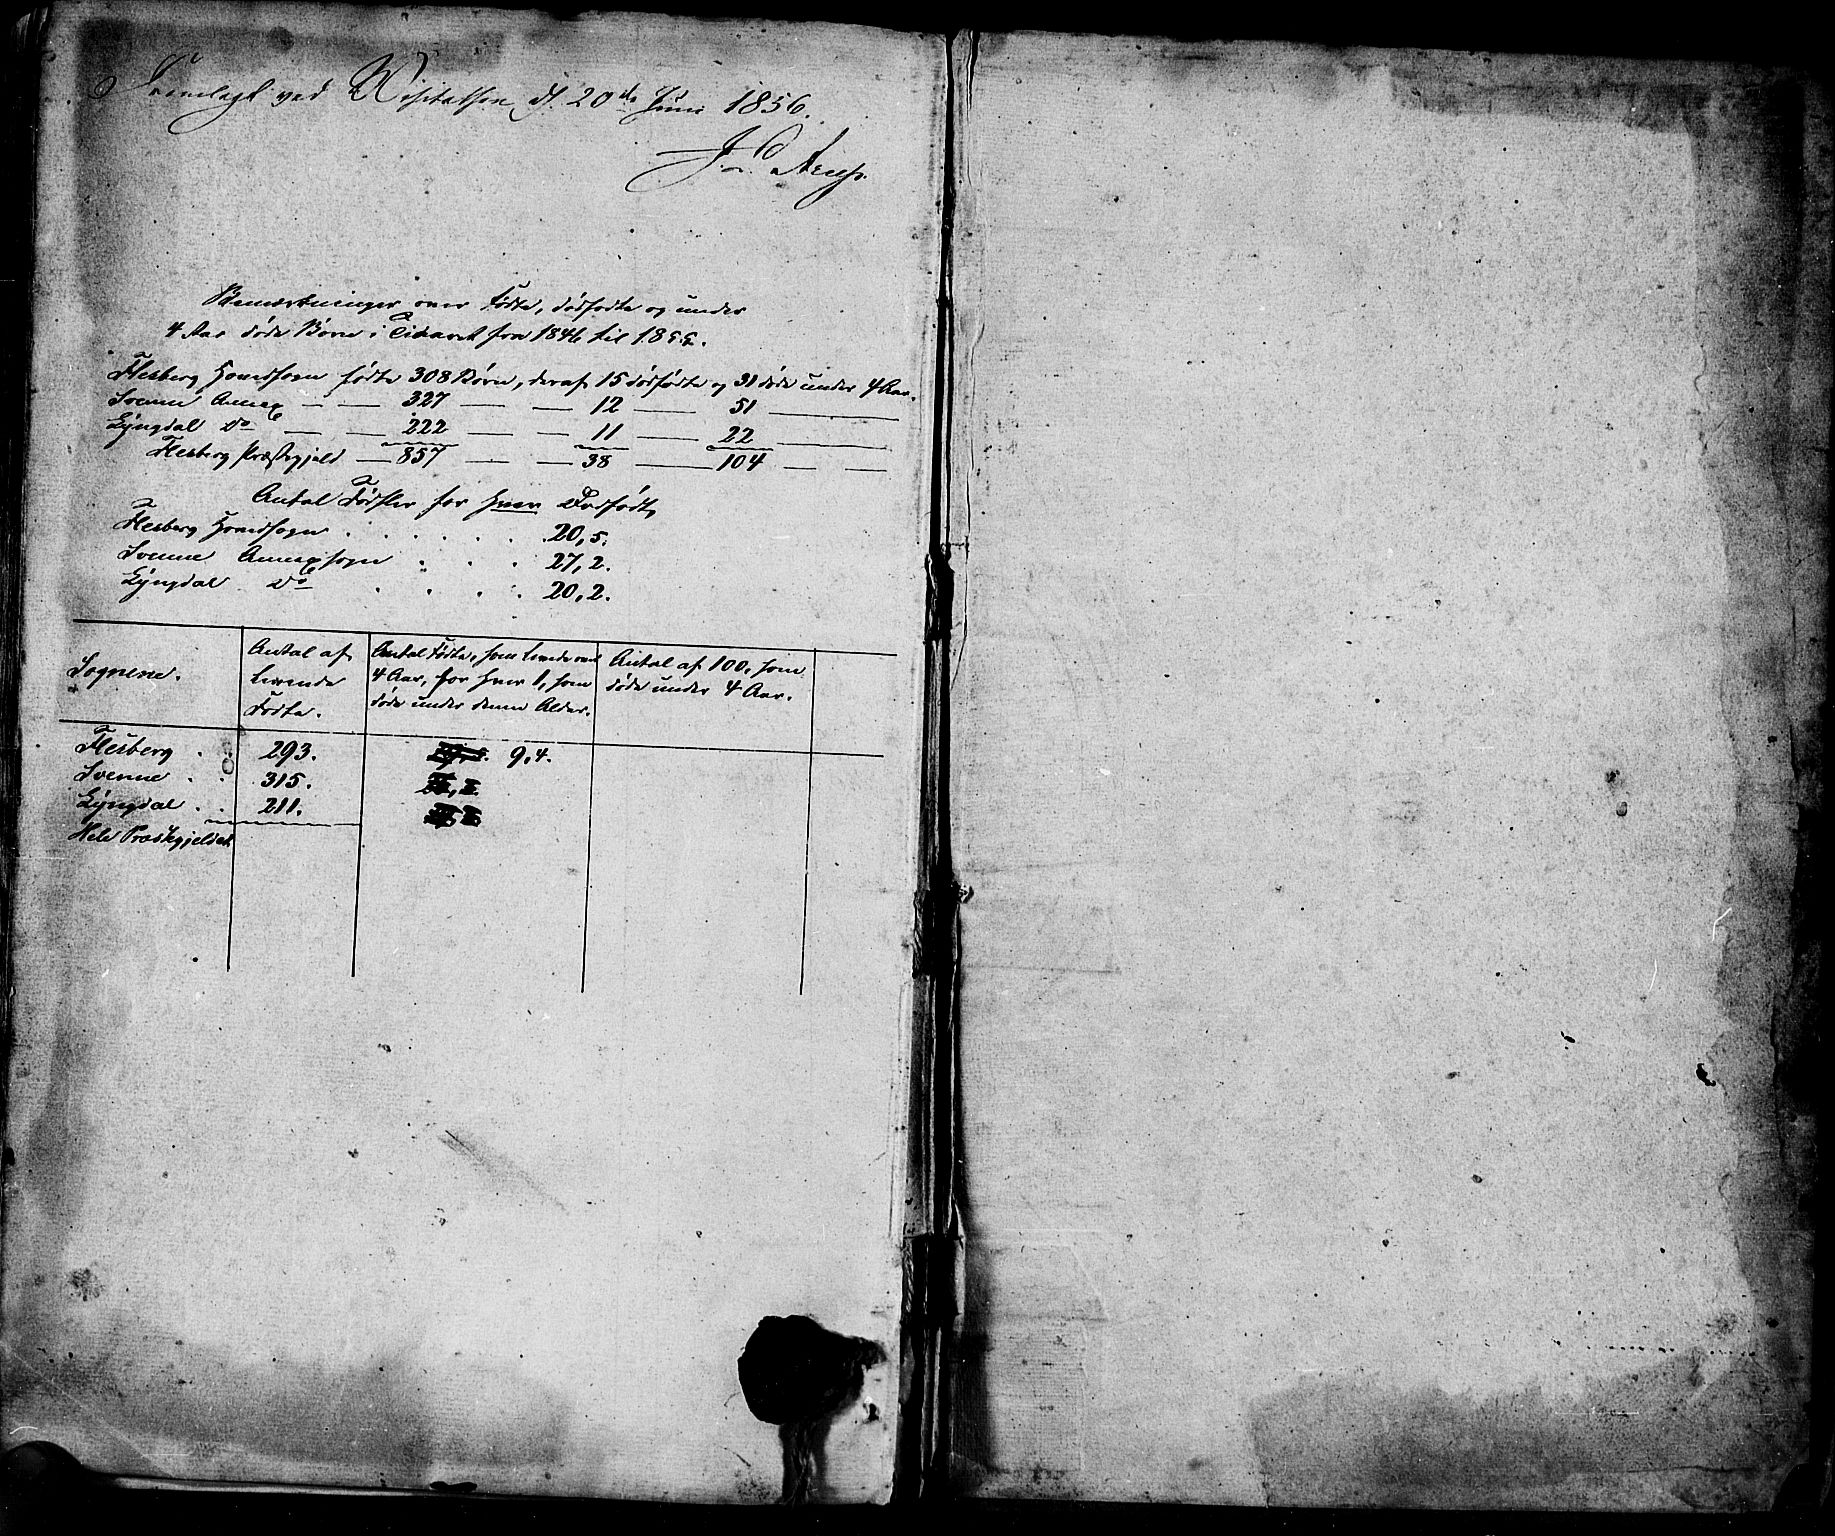 Fremlagt ved Visitatsen d. 20de Juni 1856.
J. Arup.
Bemærkninger over Fødte, dødfødte og under
4 Aar døde Børn i Tidaaret fra 1846 til 1855.
Flesberg Hovedsogn fødte 308 Børn, deraf 15 dødfødte og 31 døde under 4 Aar.
Svenne Annex — — 327 — — 12 — 51 —
Lyngdal Do — — 222 — — 11 — 22 —
Flesberg Præstegjeld — 857 — — 38 — 104 — —
Antal Fødsler for hver Dødfødt,
Flesberg Hovedsogn . . . . . . 20,5.
Svenne Annexsogn . . . 27,2.
Lyngdal Do . . . . 20,2.
Sognene. Antal af levende Fødte. Antal Fødte, som levede over 4 Aar, for hver 1, som døde under denne Alder. Antal af 100, som døde under 4 Aar.
Flesberg . . 293. 9,4.
Svenne . . 315.
Lyngdal . . 211.
Hele Præstegjeldet